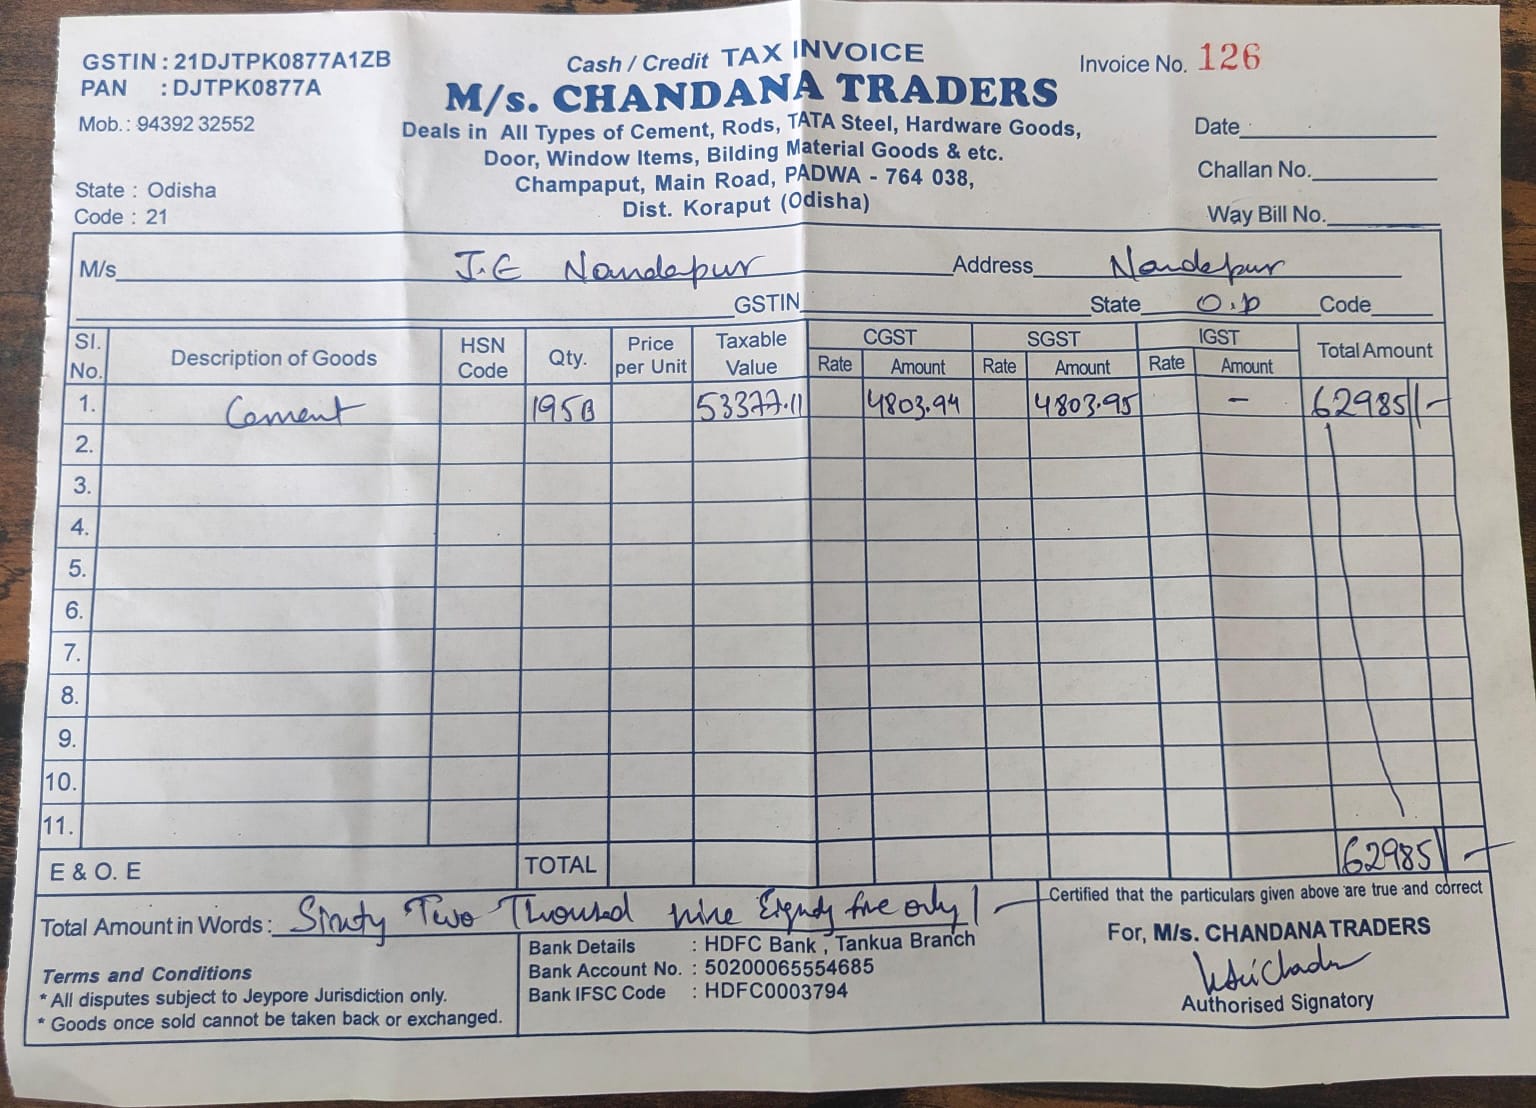 GSTIN : 21DJTPK0877A1ZB
PAN : DJTPK0877A
Mob.: 94392 32552
State : Odisha
Code : 21
Cash / Credit TAX INVOICE
M/s. CHANDANA TRADERS
Deals in All Types of Cement, Rods, TATA Steel, Hardware Goods,
Door, Window Items, Bilding Material Goods & etc.
Champaput, Main Road, PADWA - 764 038,
Dist. Koraput (Odisha)
Invoice No. 126
Date
Challan No.
Way Bill No.
M/s J.E Nandapur Address Nandapur
GSTIN State O.D Code
Sl. No. Description of Goods HSN Code Qty. Price per Unit Taxable Value CGST SGST IGST Total Amount
Rate Amount Rate Amount Rate Amount
1. Cement 195B 53377.11 4803.94 4803.95 - 62985/-
2.
3.
4.
5.
6.
7.
8.
9.
10.
11.
E & O. E TOTAL 62985/-
Total Amount in Words : Sixty Two Thousad nine Eighty five only/-
Terms and Conditions
* All disputes subject to Jeypore Jurisdiction only.
* Goods once sold cannot be taken back or exchanged.
Bank Details : HDFC Bank , Tankua Branch
Bank Account No. : 50200065554685
Bank IFSC Code : HDFC0003794
Certified that the particulars given above are true and correct
For, M/s. CHANDANA TRADERS
Authorised Signatory